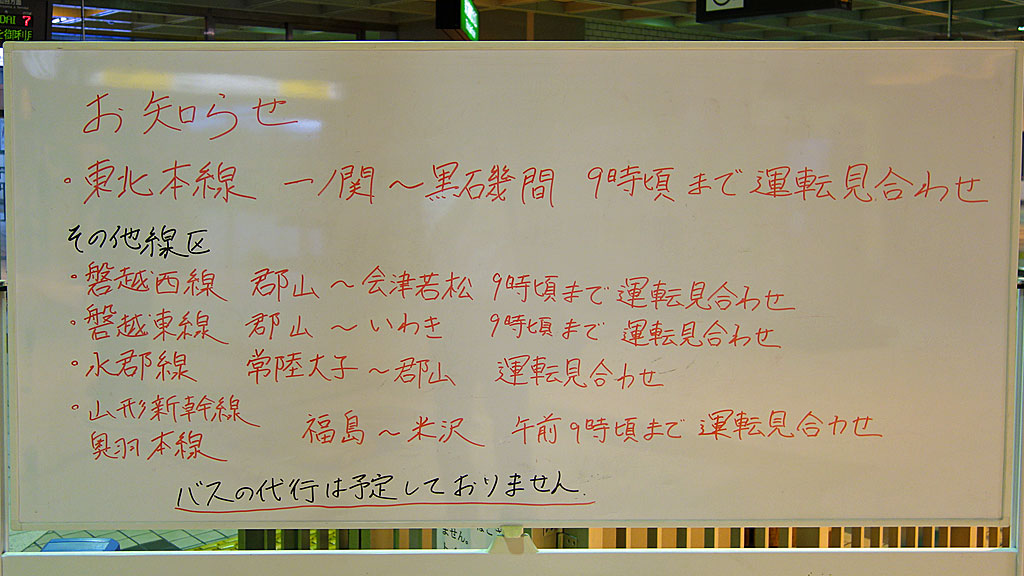 DAI 7
お知らせ
・東北本線 一ノ関～黒石幾間 9時頃まで運転見合わせ
その他線区
・磐越西線 郡山～会津若松 9時頃まで運転見合わせ
・磐越東線 郡山～いわき 9時頃まで運転見合わせ
・水郡線 常陸大子～郡山 運転見合わせ
・山形新幹線
奥羽本線 福島～米沢 午前9時頃まで運転見合わせ
バスの代行は予定しておりません.
ません。